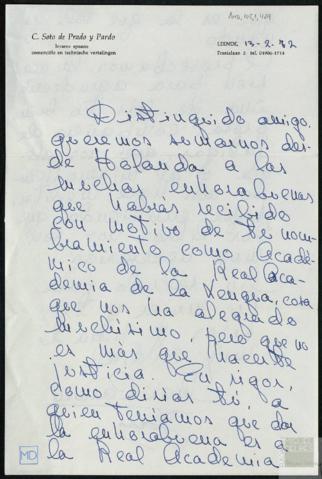 C. Soto de Prado y Pardo
LEENDE, 13-2-82
Distinguido amigo:
queremos sumarnos des-
de Holanda a las
muchas enhorabuenas
que habrás recibido
con motivo de tu nom-
bramiento como Acadé-
mico de la Real Aca-
demia de la Lengua, cosa
que nos ha alegrado
muchísimo, pero que no
es más que hacerte
justicia. En rigor,
como dirías tú, a
quien teníamos que dar
la enhorabuena es a
la Real Academia
MD